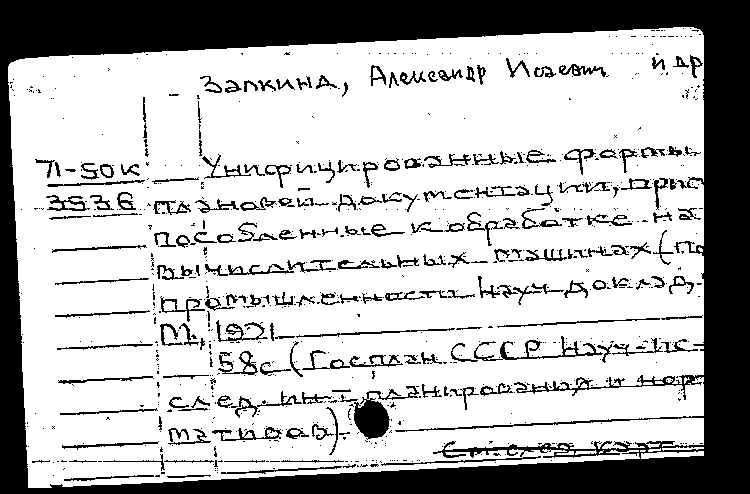 Залкинд, Александр Исаевич и др
71-50к Унифицированные формы
3936 плановой документации, прис
пособленные к обработке на
вычислительных машинах (по
промышленности Науч. доклад.
М., 1971
58с (Госплан СССР Науч-ис-
след. ин-т планирования и нор
мативов).
См. след. карт